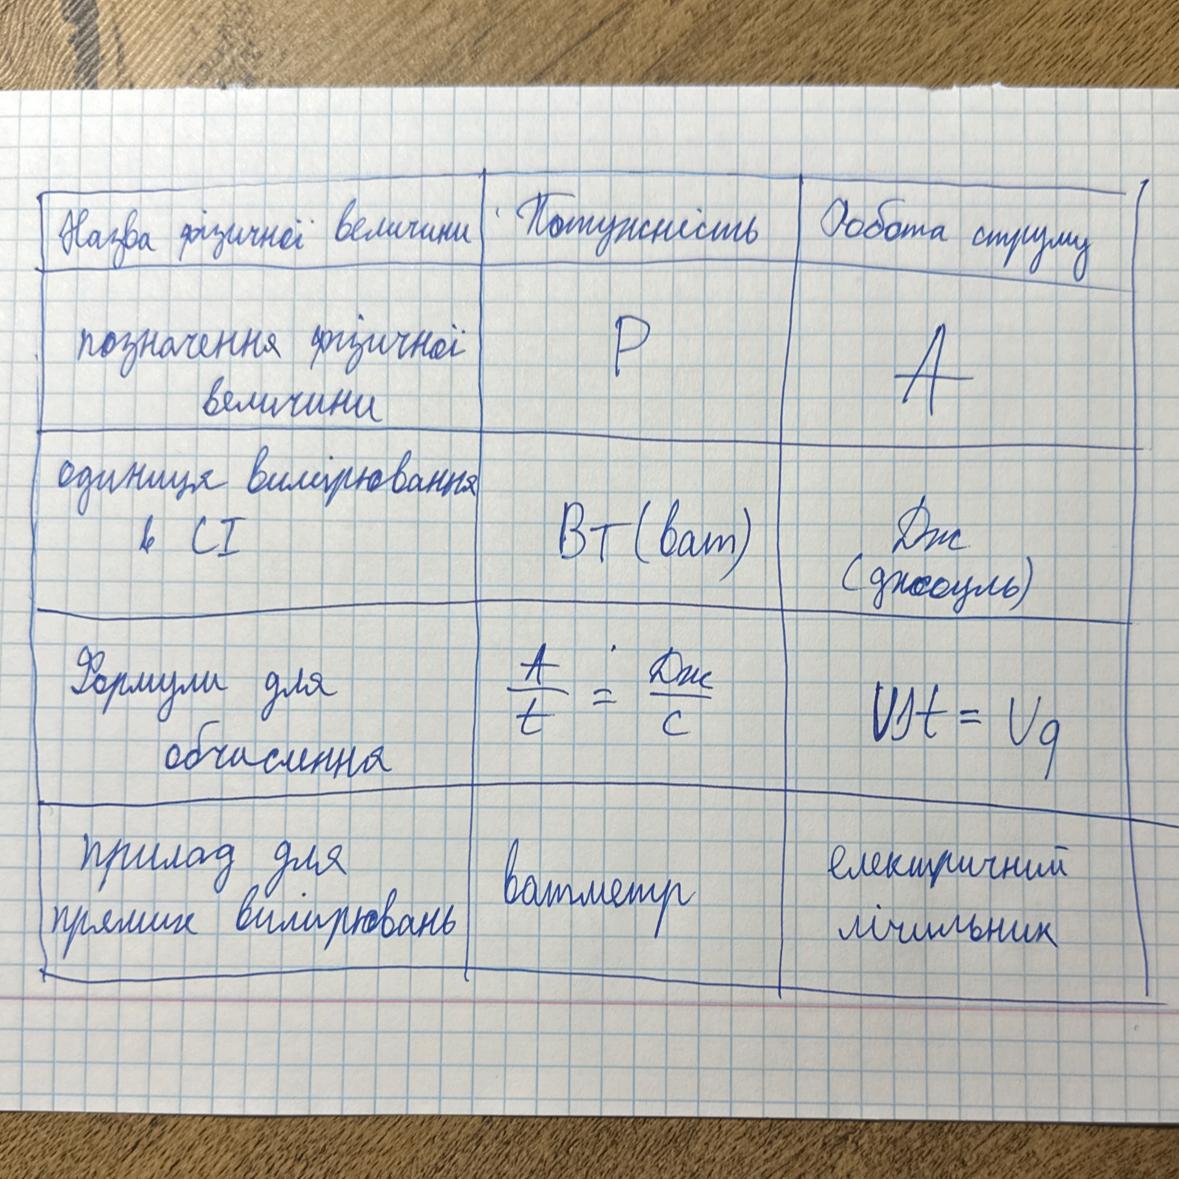 Назва фізичної величини Потужність Робота струму
позначення фізичної
величини P A
одиниця вимірювання
в СІ Вт (ват) Дж
(джоуль)
Формули для
обчислення A/t = Дж/с UIt = Uq
прилад для
прямих вимірювань ватметр електричний
лічильник